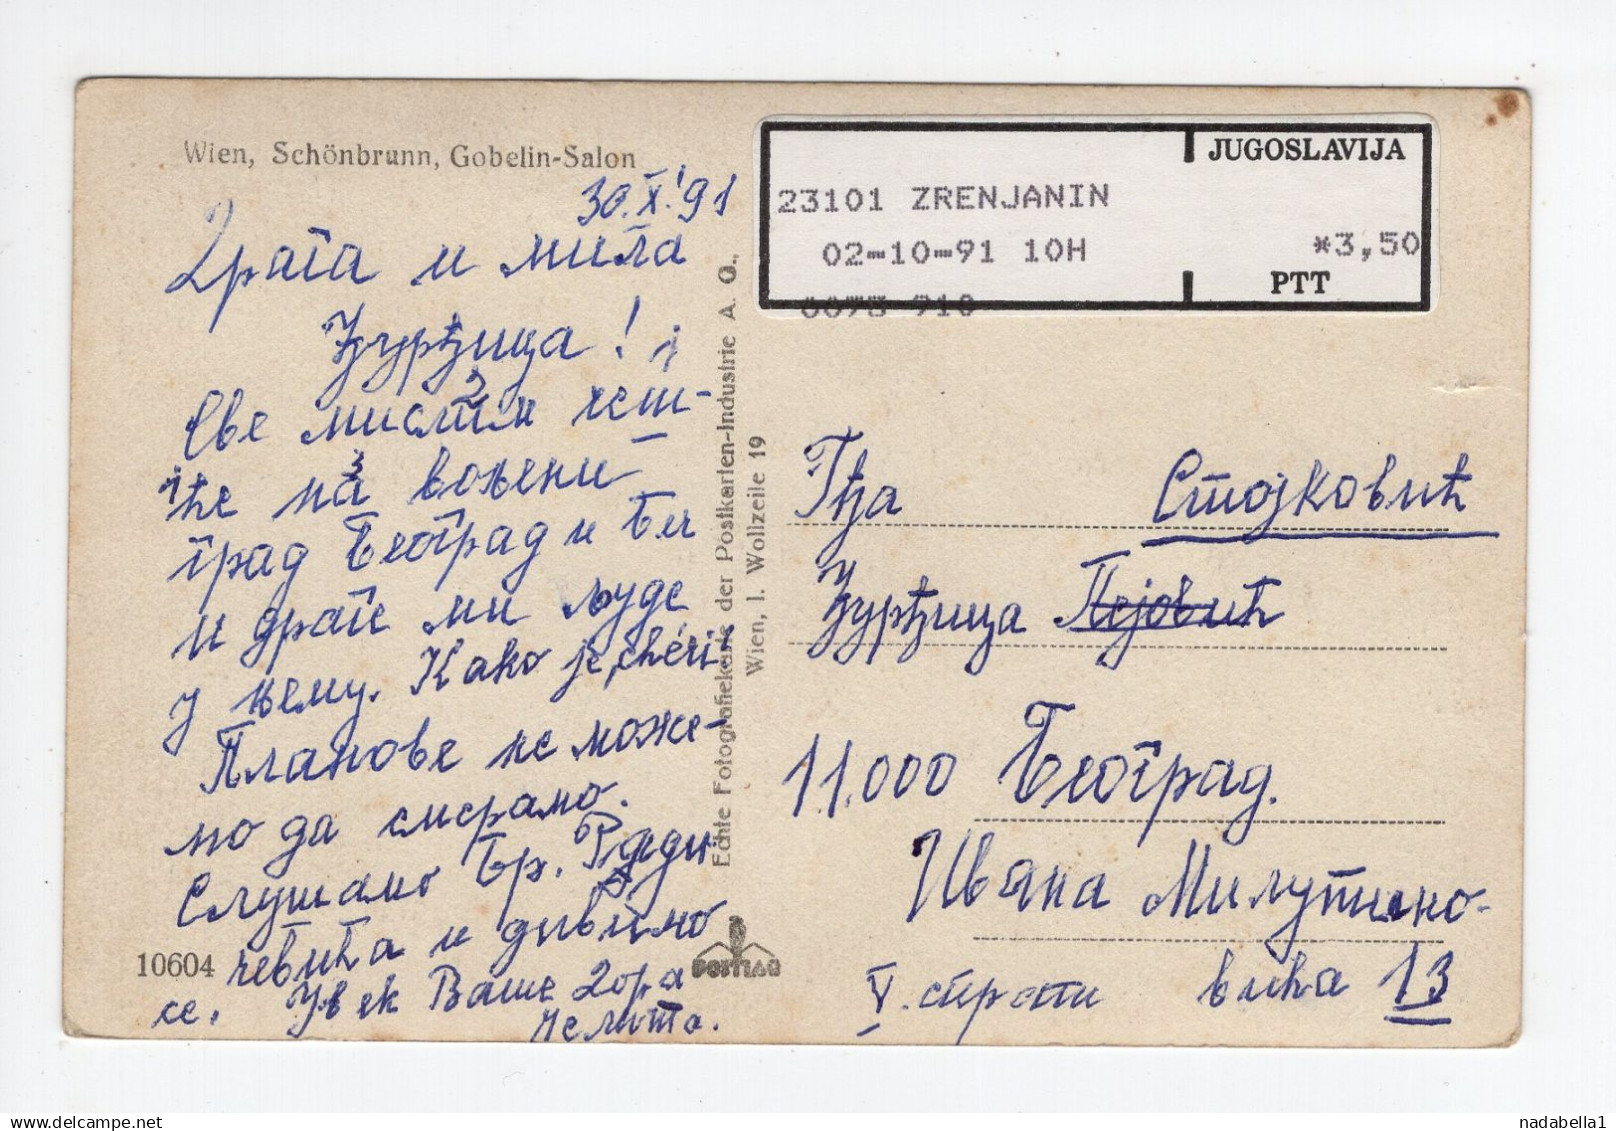 Wien, Schönbrunn, Gobelin-Salon
30.X.'91
Драга и мила
Ђурђица!
Све мислим
на вољени
град Београд и
и драге ми људе
у њему. Како је, chéri
Планове не може-
мо да смерамо.
Слушамо Бр.
и дивимо
се. Увек Ваше
10604
Echte Fotografiekarte der Postkarten-Industrie A. G.,
Wien, I. Wollzeile 19
POSTIAG
JUGOSLAVIJA
23101 ZRENJANIN
02-10-91 10H *3,50
PTT
Гђа Стојковић
Ђурђица Пејовић
11.000 Београд.
Ивана Милутино-
V. спрат вића 13
nadabella1